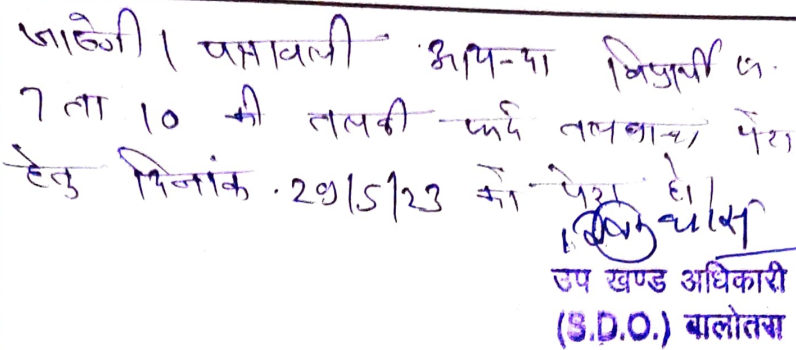 जावेगी। पत्रावली आयन्दा विप्रार्थी सं.
7 ता 10 की तलबी फर्द तलबाना पेश
हेतु दिनांक 29/5/23 को पेश हो।
उप खण्ड अधिकारी
(S.D.O.) बालोतरा